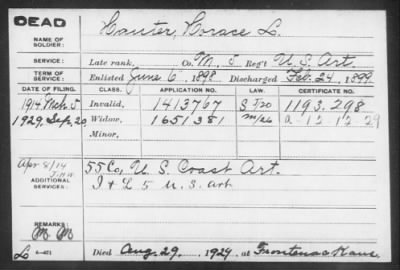 DEAD
NAME OF SOLDIER: Canter, Horace L.
SERVICE: Late rank, Co. M, 5 Reg't U.S. Art.
TERM OF SERVICE: Enlisted June 6, 1898. Discharged Feb. 24, 1899
DATE OF FILING. CLASS. APPLICATION NO. LAW. CERTIFICATE NO.
1914 Mch 5 Invalid, 1413767 1193.298
1929. Sep. 20 Widow, 1651381 m/26 a-12 12 29
Minor,
Apr 8/14 55 Co, U.S. Coast Art.
ADDITIONAL SERVICES: I & L 5 U.S. Art
REMARKS:
M M
L
6-471 Died Aug. 29, 1929, at Frontenac Kans.